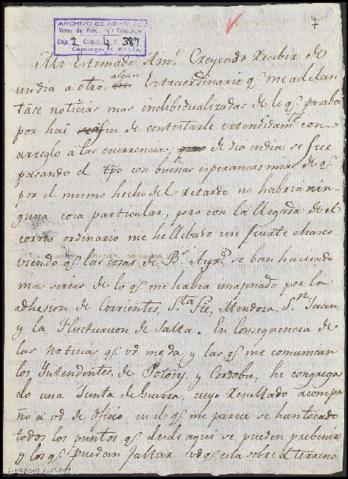 7
ARCHIVO DE
Caja 2 Carp. 4 N. 387
Mi Estimado Am.º Creyendo recibir de
un dia a otro algun Extraordinario q.e me adelan
tase noticias mas individualizadas de lo q.e pasaba
por hai a fin de contextarle extendidam.te con
arreglo a las ocurrencias, de dia en dia se fue
pasando el tpo con buenas esperanzas mias de q.e
por el mismo hecho del retardo no habria nin-
guna cosa particular, pero con la llegada de el
correo ordinario me he llebado un fuerte chasco
viendo q.e las cosas de B.s Ayr.s se ban haciendo
mas serias de lo q.e me habia imaginado por la
adhesion de Corrientes, S.ta Fée, Mendoza, S.n Juan,
y la fluctuacion de Salta. En consequencia de
las noticias q.e vd me da, y las q.e me comunican
los Yntendentes, de Potosi, y Cordoba, he congrega
do una Junta de Guerra, cuyo resultado acompa
ño a vd de oficio en el q.e me parece se han tocado
todos los puntos q.e desde aqui se pueden prebenir
y los q.e puedan faltar vd q.e esta sobre el terreno